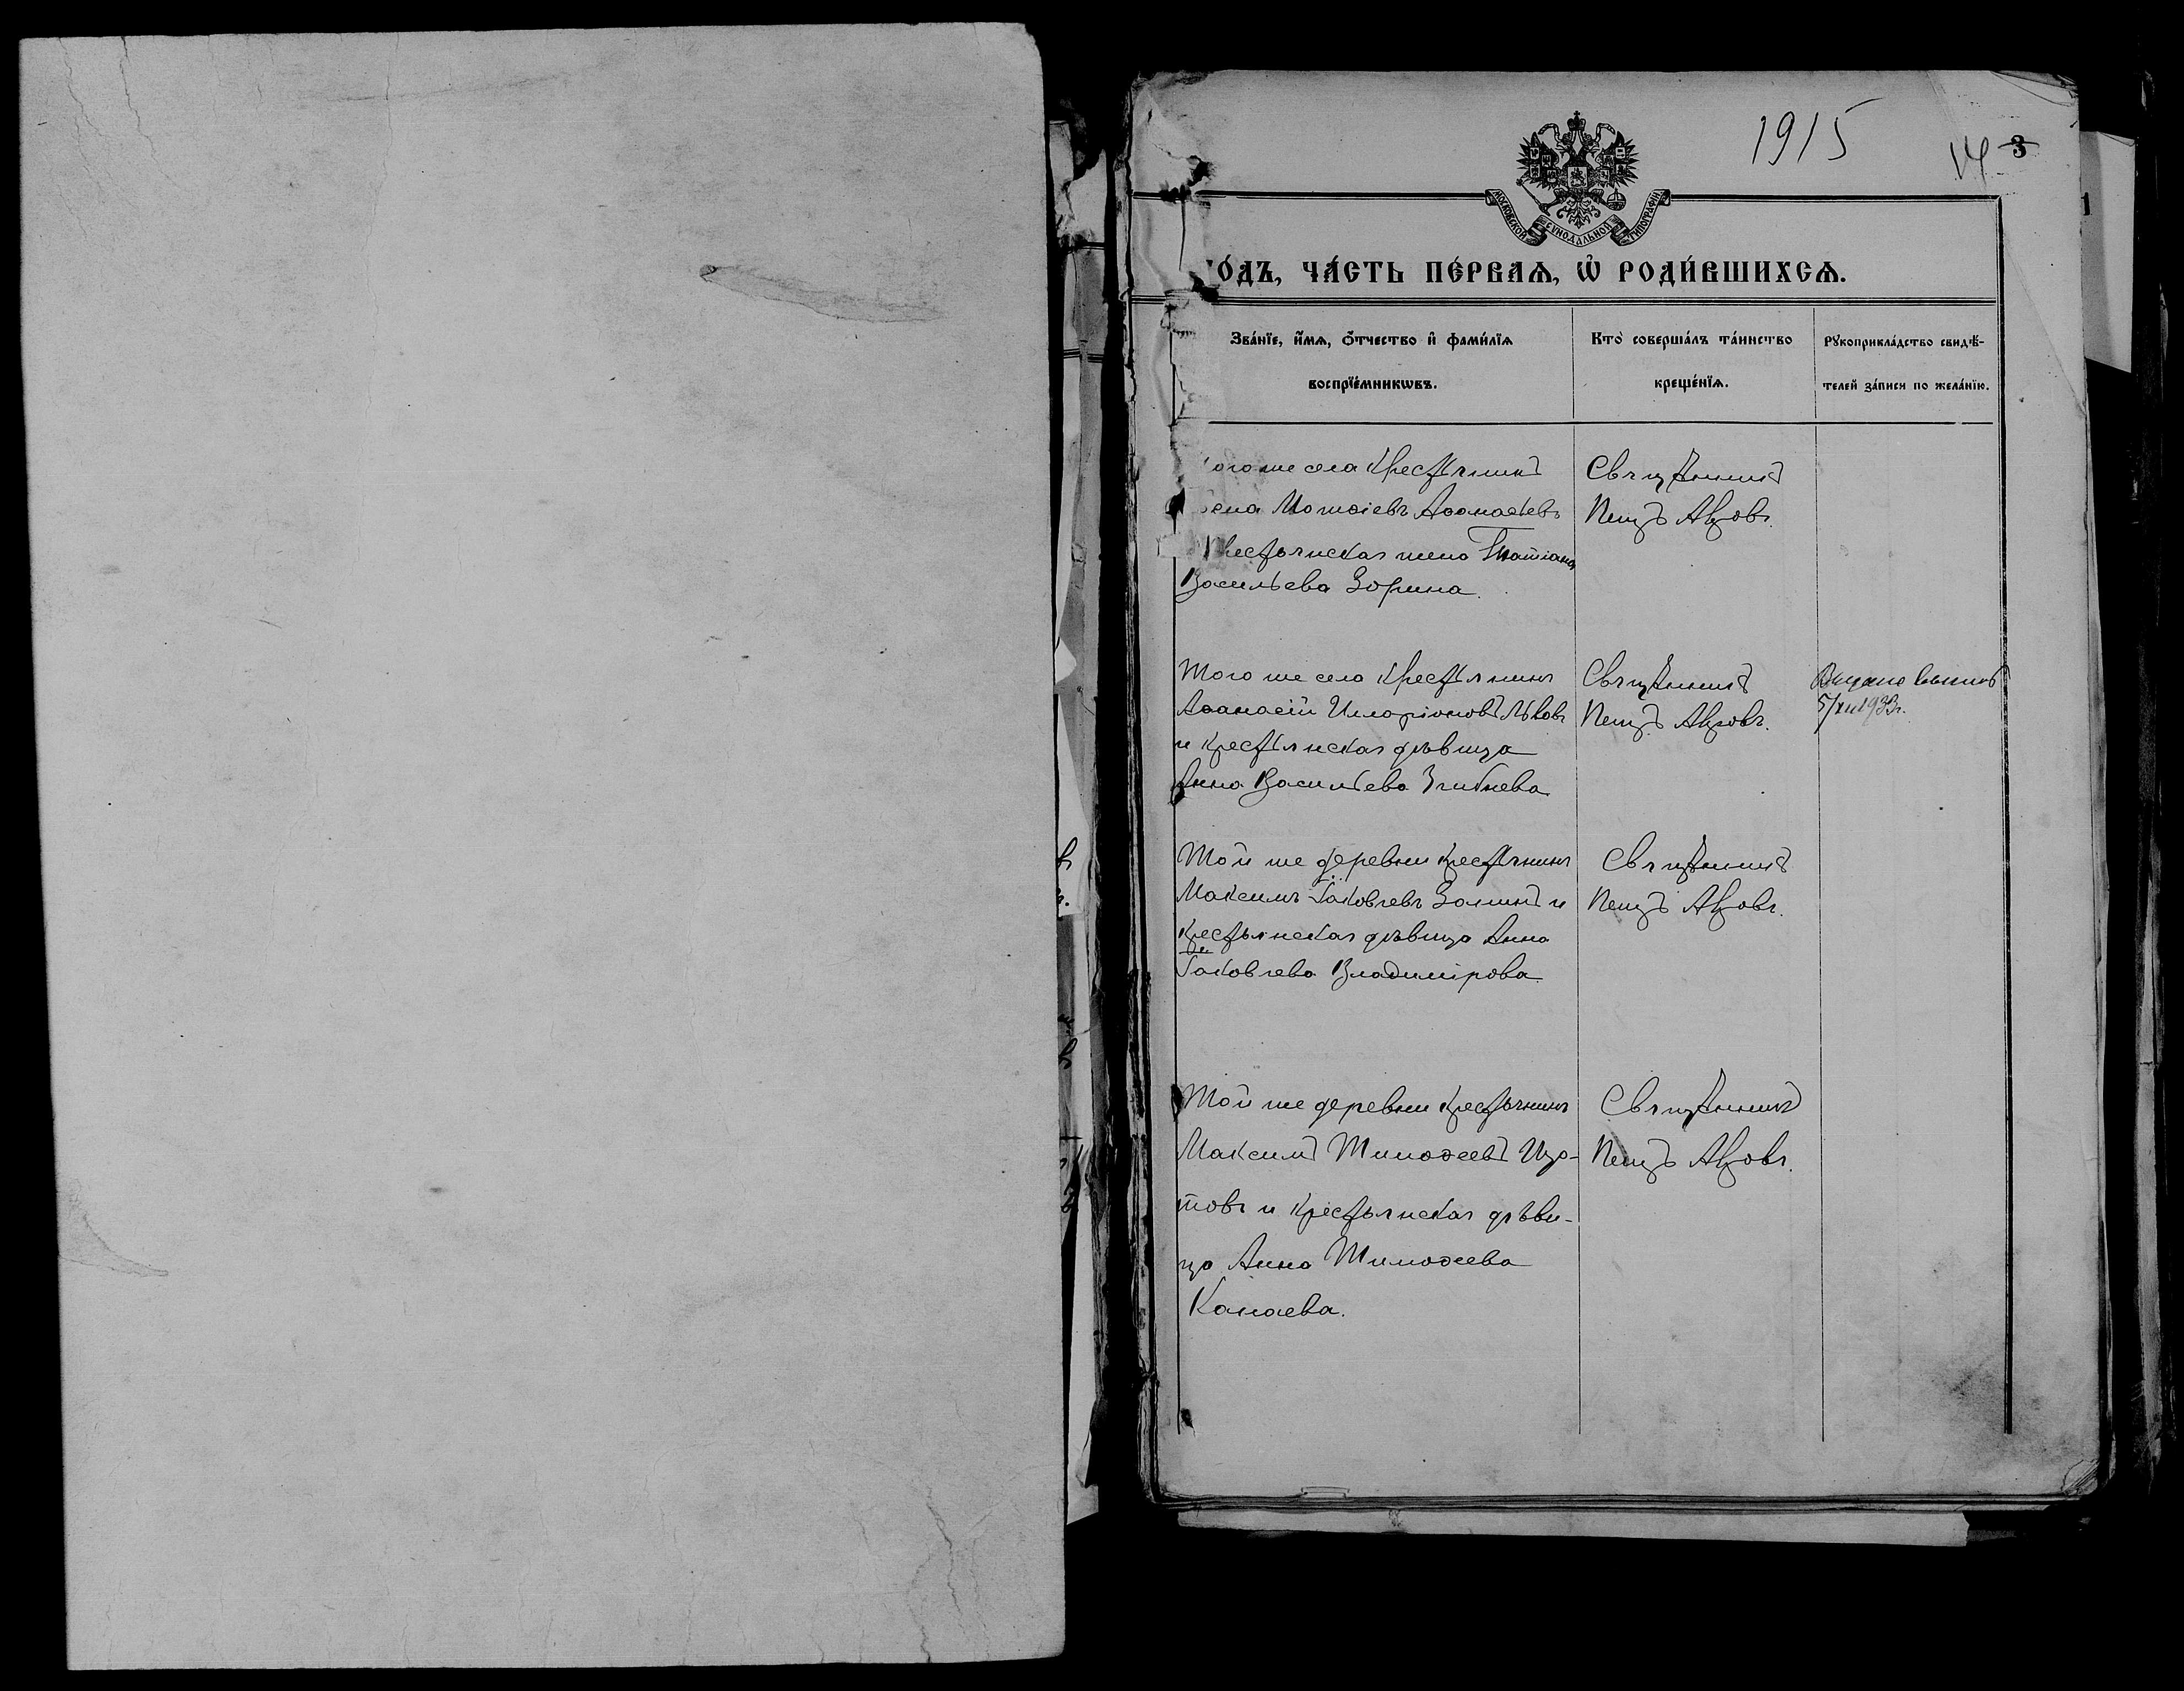 1915
14 3
МОСКОВСКОЙ СУНОДАЛЬНОЙ ТИПОГРАФІИ
ОДЪ, ЧА́СТЬ ПЕ́РВАѦ, Ѽ РОДИ́ВШИХСѦ.
Зва́нїе, и҆́мѧ, ѻ҆́тчество и҆ фами́лїѧ
воспрїе́мникѡвъ.
Кто̀ соверша́лъ та́инство
креще́нїѧ.
Рꙋкоприкла́дство свидѣ́-
телей за́писи по жела́нїю.
ого же села Крестьянинъ
Матѳіевъ Аѳанасьевъ
Крестьянская жена Татіана
Васильева Зорина.
Священникъ
Петръ
Того же села Крестьянинъ
Аѳанасій Иларіоновъ Львовъ
и крестьянская дѣвица
Анна Васильева
Священникъ
Петръ
Выдано
5/XII 1933г.
Той же деревни крестьянинъ
Максимъ Іаковлевъ и
крестьянская дѣвица Анна
Іаковлева Владимірова.
Священникъ
Петръ
Той же деревни крестьянинъ
Максимъ Тимоѳеевъ Изо-
товъ и крестьянская дѣви-
ца Анна Тимоѳеева
Канаева.
Священникъ
Петръ